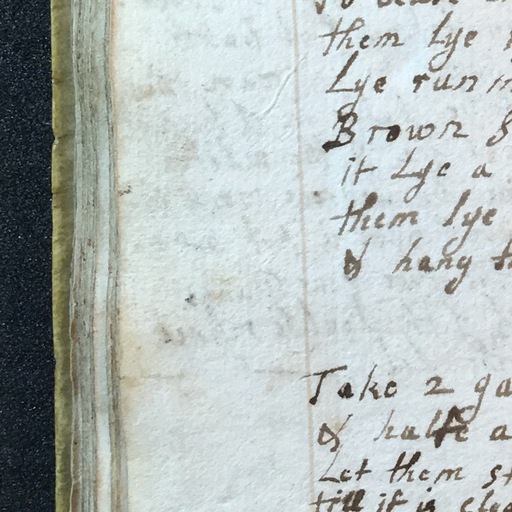 them lye
Lye run
Brown
it Lye a
them lye
& hang
Take 2
& halfe a
Let them
till it is